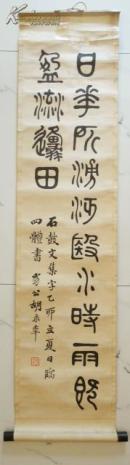 日華所湧汧殹小時雨既
盈流邍田
石鼓文集字乙卯立夏日臨
四體書 公胡